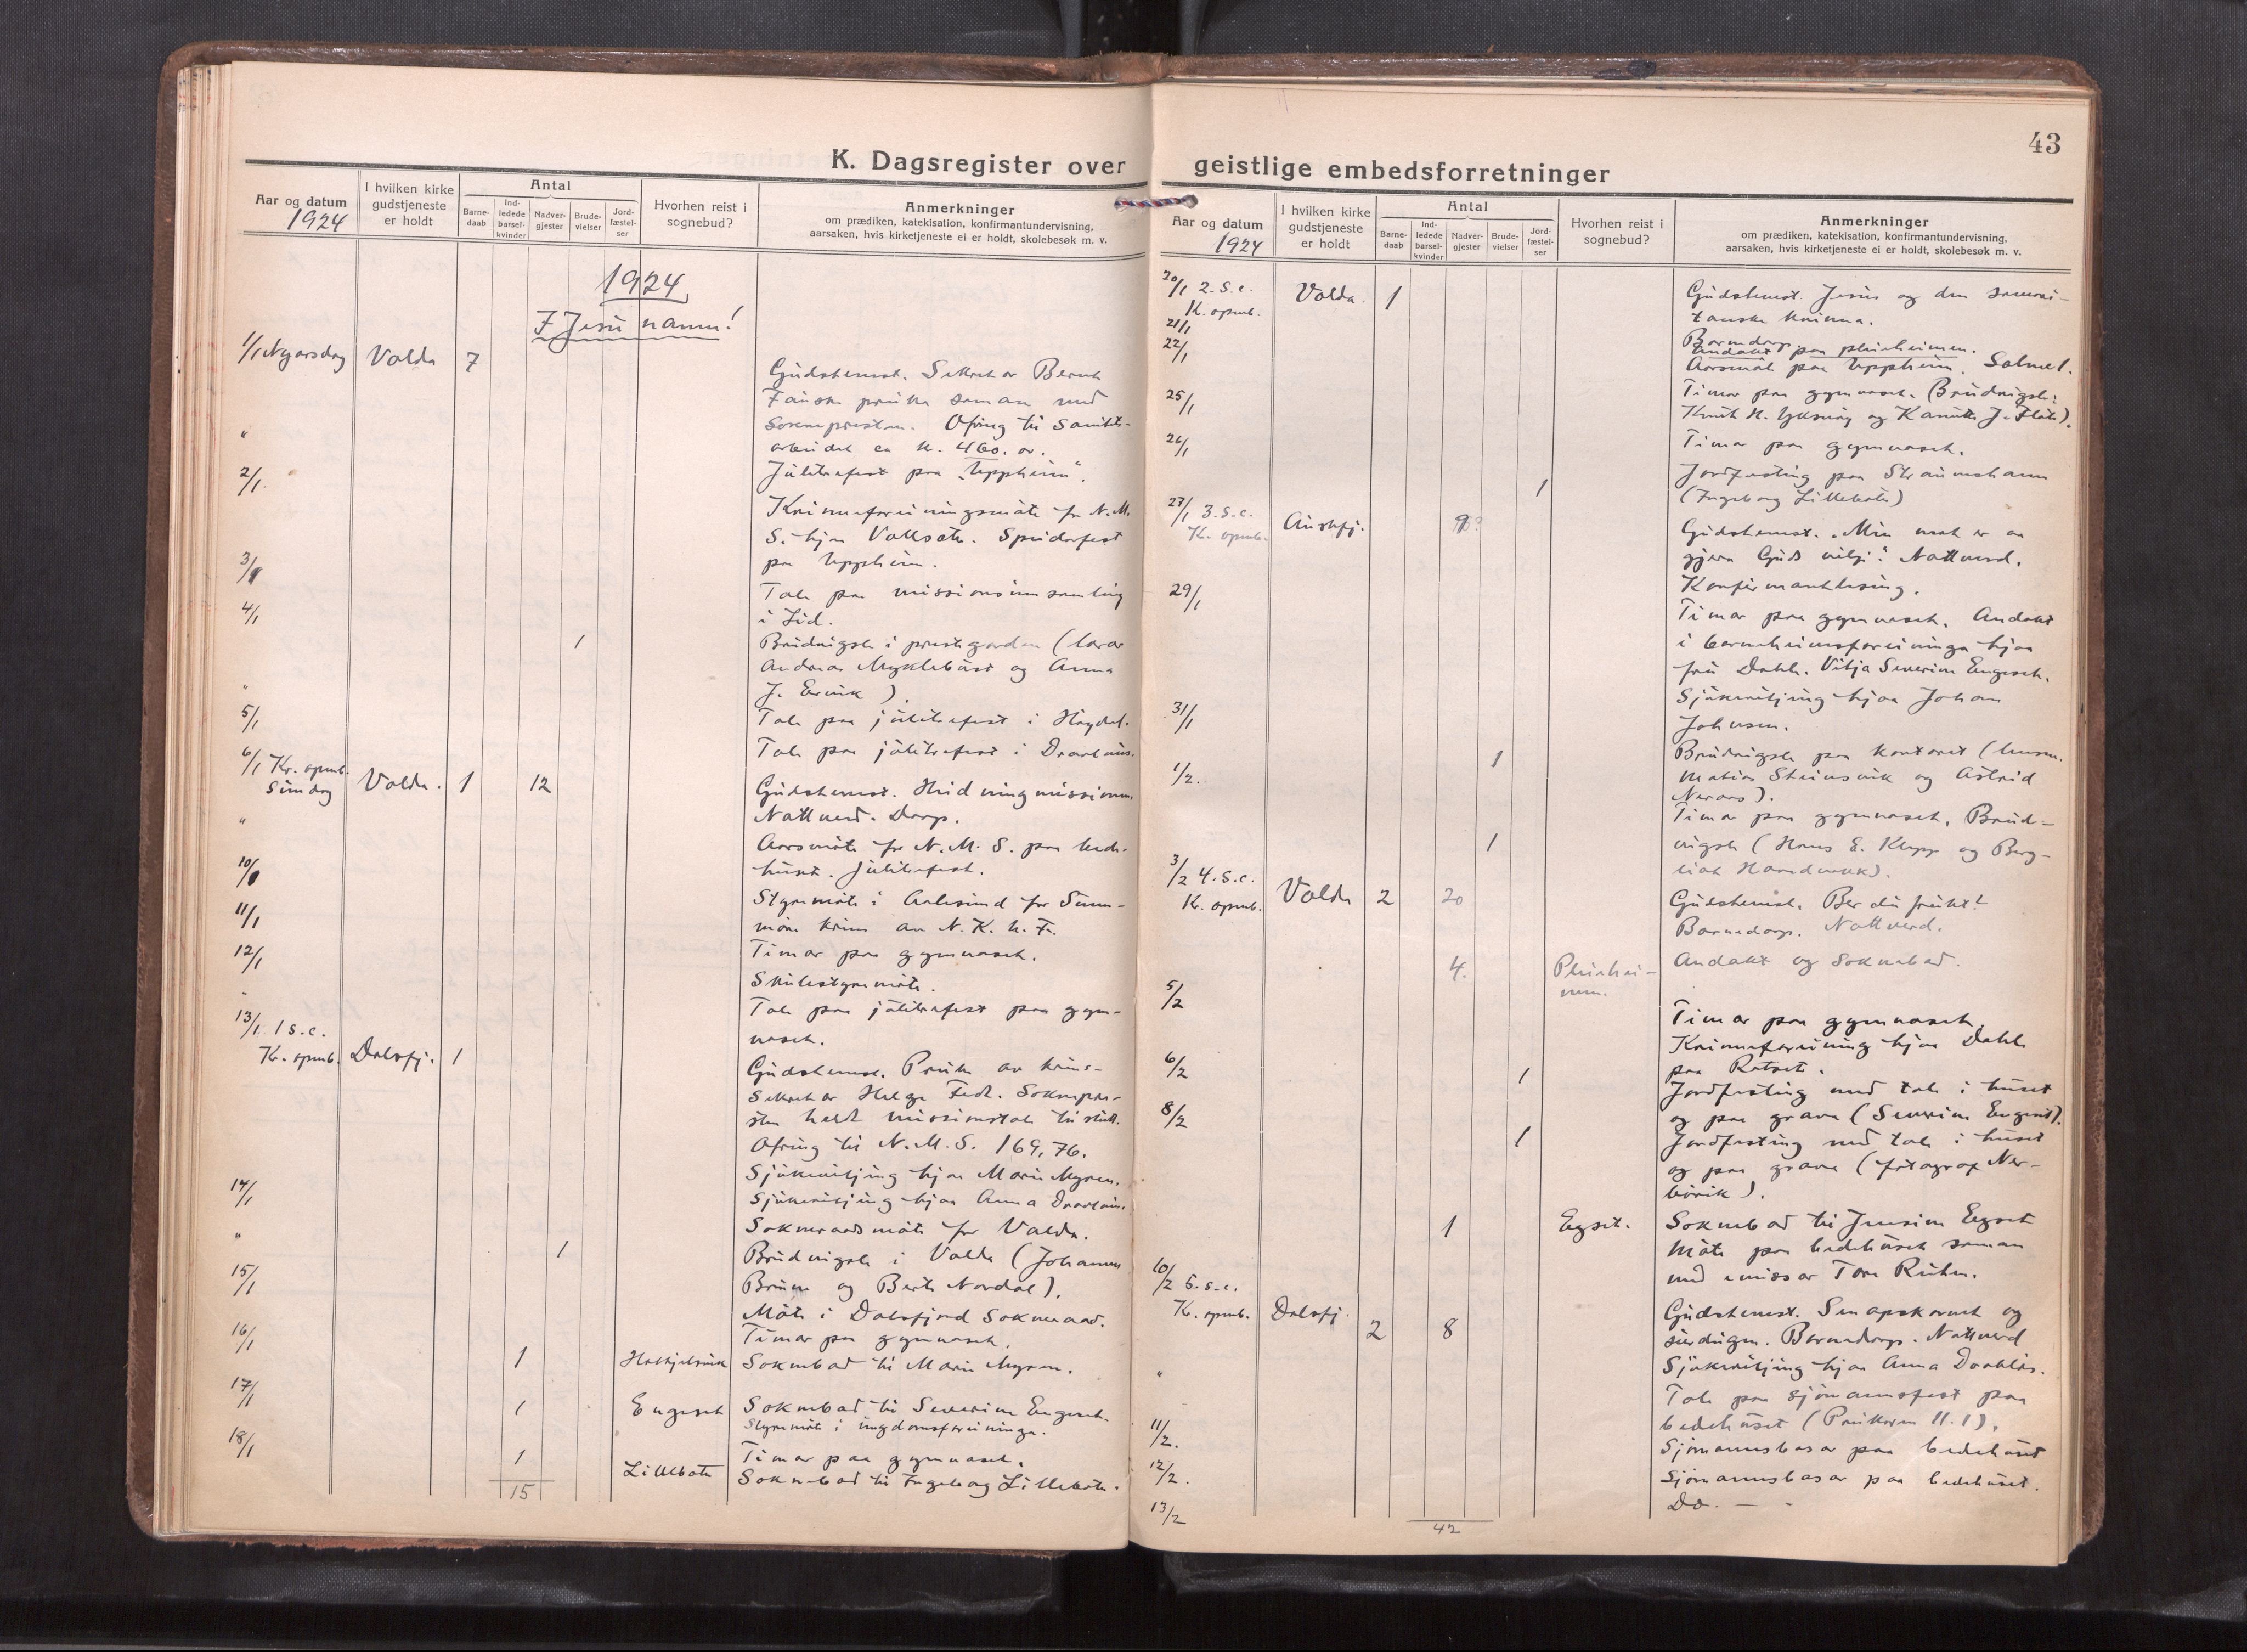 K. Dagsregister over
Aar og datum
1924
I hvilken kirke
gudstjeneste
er holdt
Antal
Barne-
daab
Ind-
ledede
barsel-
kvinder
Nadver-
gjester
Brude-
vielser
Jord-
fæstel-
ser
Hvorhen reist i
sognebud?
Anmerkninger
om prædiken, katekisation, konfirmantundervisning,
aarsaken, hvis kirketjeneste ei er holdt, skolebesøk m. v.
1924
I Jesu namn!
1/1 Nyarsdag Volda 7
Gudstenest. Sekretær Bernt
Fauske preika saman med
Soknepresten. Ofring til sanitets-
arbeidet ca kr. 460.
" Juletrefest paa "Uppheim".
2/1 Kvinneforeiningsmöte for N.M.
S. hjaa Vollsæte.
paa Uppheim.
3/1 Tale paa missionsinnsamling
i Lid.
4/1 1 Brudvigsle i prestegarden (lærar
Andreas Myklebust og Anna
J. Ervik).
" Tale paa juletrefest i Høydal.
5/1 Tale paa juletrefest i
6/1 Kr. openb.
Sundag Volda. 1 12 Gudstenest. Heidningmissionen.
Nattverd. Daap.
" Aarsmöte for N.M.S. paa bede-
huset. Juletrefest.
10/1 Styremöte i Aalesund for Sunn-
möre krins av N. K. U. F.
11/1 Timar paa gymnaset.
12/1 Skulestyremöte.
Tale paa juletrefest paa gym-
naset.
13/1 1 S.e.
Kr. openb. Dalsfj. 1 Gudstenest. Preike av krins-
sekretær Helge Fedt. Soknepre-
sten heldt missionstale til slutt.
Ofring til N.M.S. 169,76.
Sjukevitjing hjaa Marie Myren.
14/1 Sjukevitjing hjaa Anna
Sokneraadsmöte for Volda.
" 1 Brudvigsle i Volda (Johannes
Brune og Berte Nordal).
15/1 Möte i Dalsfjord Sokneraad.
16/1 Timar paa gymnaset.
1 Hoskjelsvik Soknebod til Marie Myren.
17/1 1 Engeset Soknebod til Severine Engeset.
Styremöte i ungdomsforeininga.
18/1 Timar paa gymnaset.
1 Lillebøte Soknebod til Ingeborg Lillebøte.
15
43
geistlige embedsforretninger
Aar og datum
1924
I hvilken kirke
gudstjeneste
er holdt
Antal
Barne-
daab
Ind-
ledede
barsel-
kvinder
Nadver-
gjester
Brude-
vielser
Jord-
fæstel-
ser
Hvorhen reist i
sognebud?
Anmerkninger
om prædiken, katekisation, konfirmantundervisning,
aarsaken, hvis kirketjeneste ei er holdt, skolebesøk m. v.
20/1 2. S. e.
Kr. openb. Volda. 1 Gudstenest. Jesus og den samari-
tanske kvinna.
Barnedaap.
21/1 Andakt paa pleieheimen.
22/1 Aarsmöte paa Uppheim.
25/1 Timar paa gymnaset. (Brudvigsle:
Knut H. og J. Flöte).
26/1 Timar paa gymnaset.
1 Jordfesting paa Straumshamn
(Ingeborg Lillebøte)
27/1 3. S. e.
Kr. openb. Austefj. Gudstenest. "Min mat er aa
gjera Guds vilje". Nattverd.
Konfirmantlesing.
29/1 Timar paa gymnaset. Andakt
i barneheimsforeininga hjaa
fru Dahle. Vitja Severine Engeset.
Sjukevitjing hjaa Johan
Johnsen.
31/1 1 Brudvigsle paa kontoret
Matias Steinsvik og Astrid
1/2. Timar paa gymnaset. Brud-
1 vigsle (Hans E. Klepp og Berg-
liot
3/2 4. S. e.
Kr. openb. Volda 2 20 Gudstenest. Ber du frukt?
Barnedaap. Nattverd.
4. Pleiehei-
men. Andakt og soknebod.
5/2 Timar paa gymnaset.
Kvinneforeining hjaa Dahle
paa Rotset.
6/2 1 Jordfesting med tale i huset
og paa grava (Severine Engeset).
8/2 1 Jordfesting med tale i huset
og paa grava (fotograf
1 Egset. Soknebod til Egset
Möte paa bedehuset saman
med emissær Tore
10/2 5. S. e.
Kr. openb. Dalsfj. 2 8 Gudstenest. Senapskornet og
surdeigen. Barnedaap. Nattverd
Sjukevitjing hjaa Anna
" Tale paa sjömannsfest paa
bedehuset (Preikeren 11.1).
11/2. Sjömannsbasar paa bedehuset
12/2. Sjömannsbasar paa bedehuset.
13/2 Do. —
42